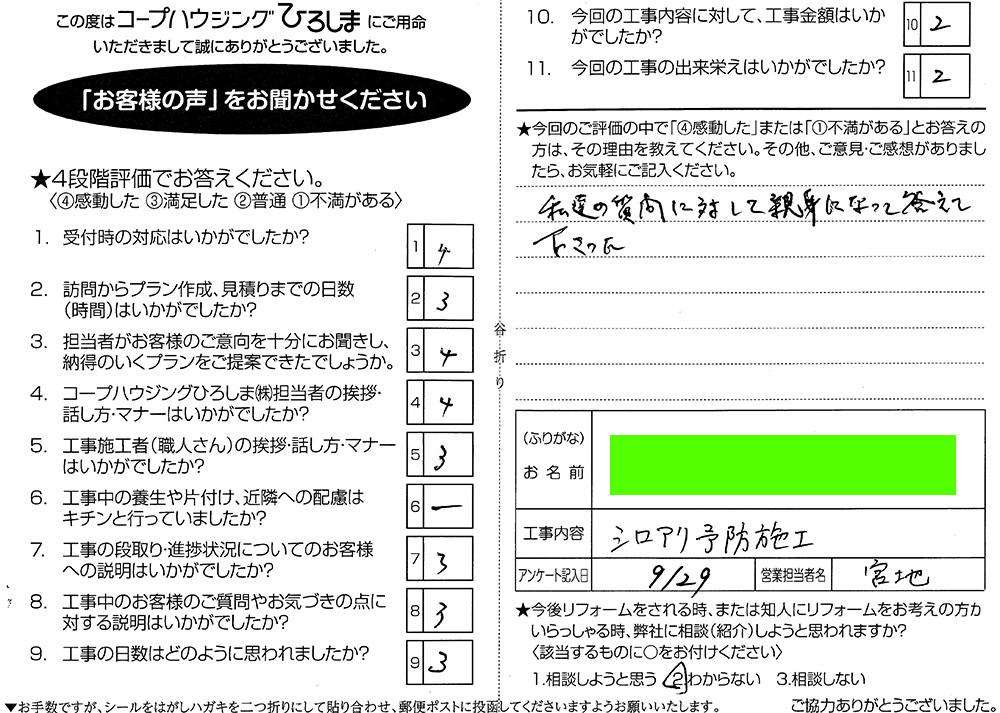 この度はコープハウジングひろしまにご用命
いただきまして誠にありがとうございました。
「お客様の声」をお聞かせください
★4段階評価でお答えください。
〈④感動した ③満足した ②普通 ①不満がある〉
1. 受付時の対応はいかがでしたか?
1 4
2. 訪問からプラン作成、見積りまでの日数
(時間)はいかがでしたか?
2 3
3. 担当者がお客様のご意向を十分にお聞きし、
納得のいくプランをご提案できたでしょうか。
3 4
4. コープハウジングひろしま㈱担当者の挨拶・
話し方・マナーはいかがでしたか?
4 4
5. 工事施工者(職人さん)の挨拶・話し方・マナー
はいかがでしたか?
5 3
6. 工事中の養生や片付け、近隣への配慮は
キチンと行っていましたか?
6 ー
7. 工事の段取り・進捗状況についてのお客様
への説明はいかがでしたか?
7 3
8. 工事中のお客様のご質問やお気づきの点に
対する説明はいかがでしたか?
8 3
9. 工事の日数はどのように思われましたか?
9 3
▼お手数ですが、シールをはがしハガキを二つ折りにして貼り合わせ、郵便ポストに投函してくださいますようお願いいたします。
谷折り
10. 今回の工事内容に対して、工事金額はいか
がでしたか?
10 2
11. 今回の工事の出来栄えはいかがでしたか?
11 2
★今回のご評価の中で「④感動した」または「①不満がある」とお答えの
方は、その理由を教えてください。その他、ご意見・ご感想がありまし
たら、お気軽にご記入ください。
私達の質問に対して親身になって答えて
下さった
(ふりがな)
お名前
工事内容 シロアリ予防施工
アンケート記入日 9/29 営業担当者名 宮地
★今後リフォームをされる時、または知人にリフォームをお考えの方が
いらっしゃる時、弊社に相談(紹介)しようと思われますか?
〈該当するものに○をお付けください〉
1.相談しようと思う 2.わからない 3.相談しない
ご協力ありがとうございました。